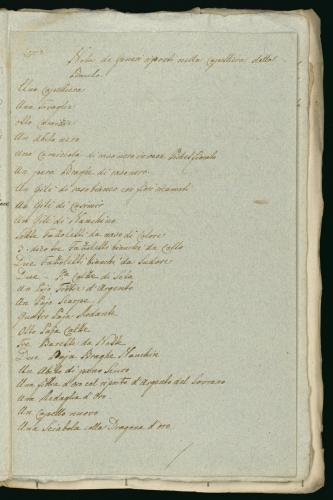 Nota de generi riposti nella Capelliera dello
Una Capelliera
Una Tovaglia
Otto Camise
Un abito nero
Una Camisciola di raso nero
Un paro Braghe di raso nero
Un Gilè di raso bianco con fiori ricamati
Un Gilè di Casimir
Un Gilè di Nanchino
Sette Fazzoletti da naso di Colore
3. dico tre Fazzoletti bianchi da Collo
Due Fazzoletti bianchi da Sudore
Due Calze di Seta
Un Pajo Fibbie d'Argento
Un Pajo Scarpe
Quattro Paja Mudante
Otto Paja Calze
Tre Barette da Notte
Due Paja Braghe Nanchin
Un Abito di panno Scuro
Una fibia d'oro col riporto d'Argento del Sovrano
Una Medaglia d'Oro
Un Capello nuovo
Una Sciabola colla Dragona d'oro